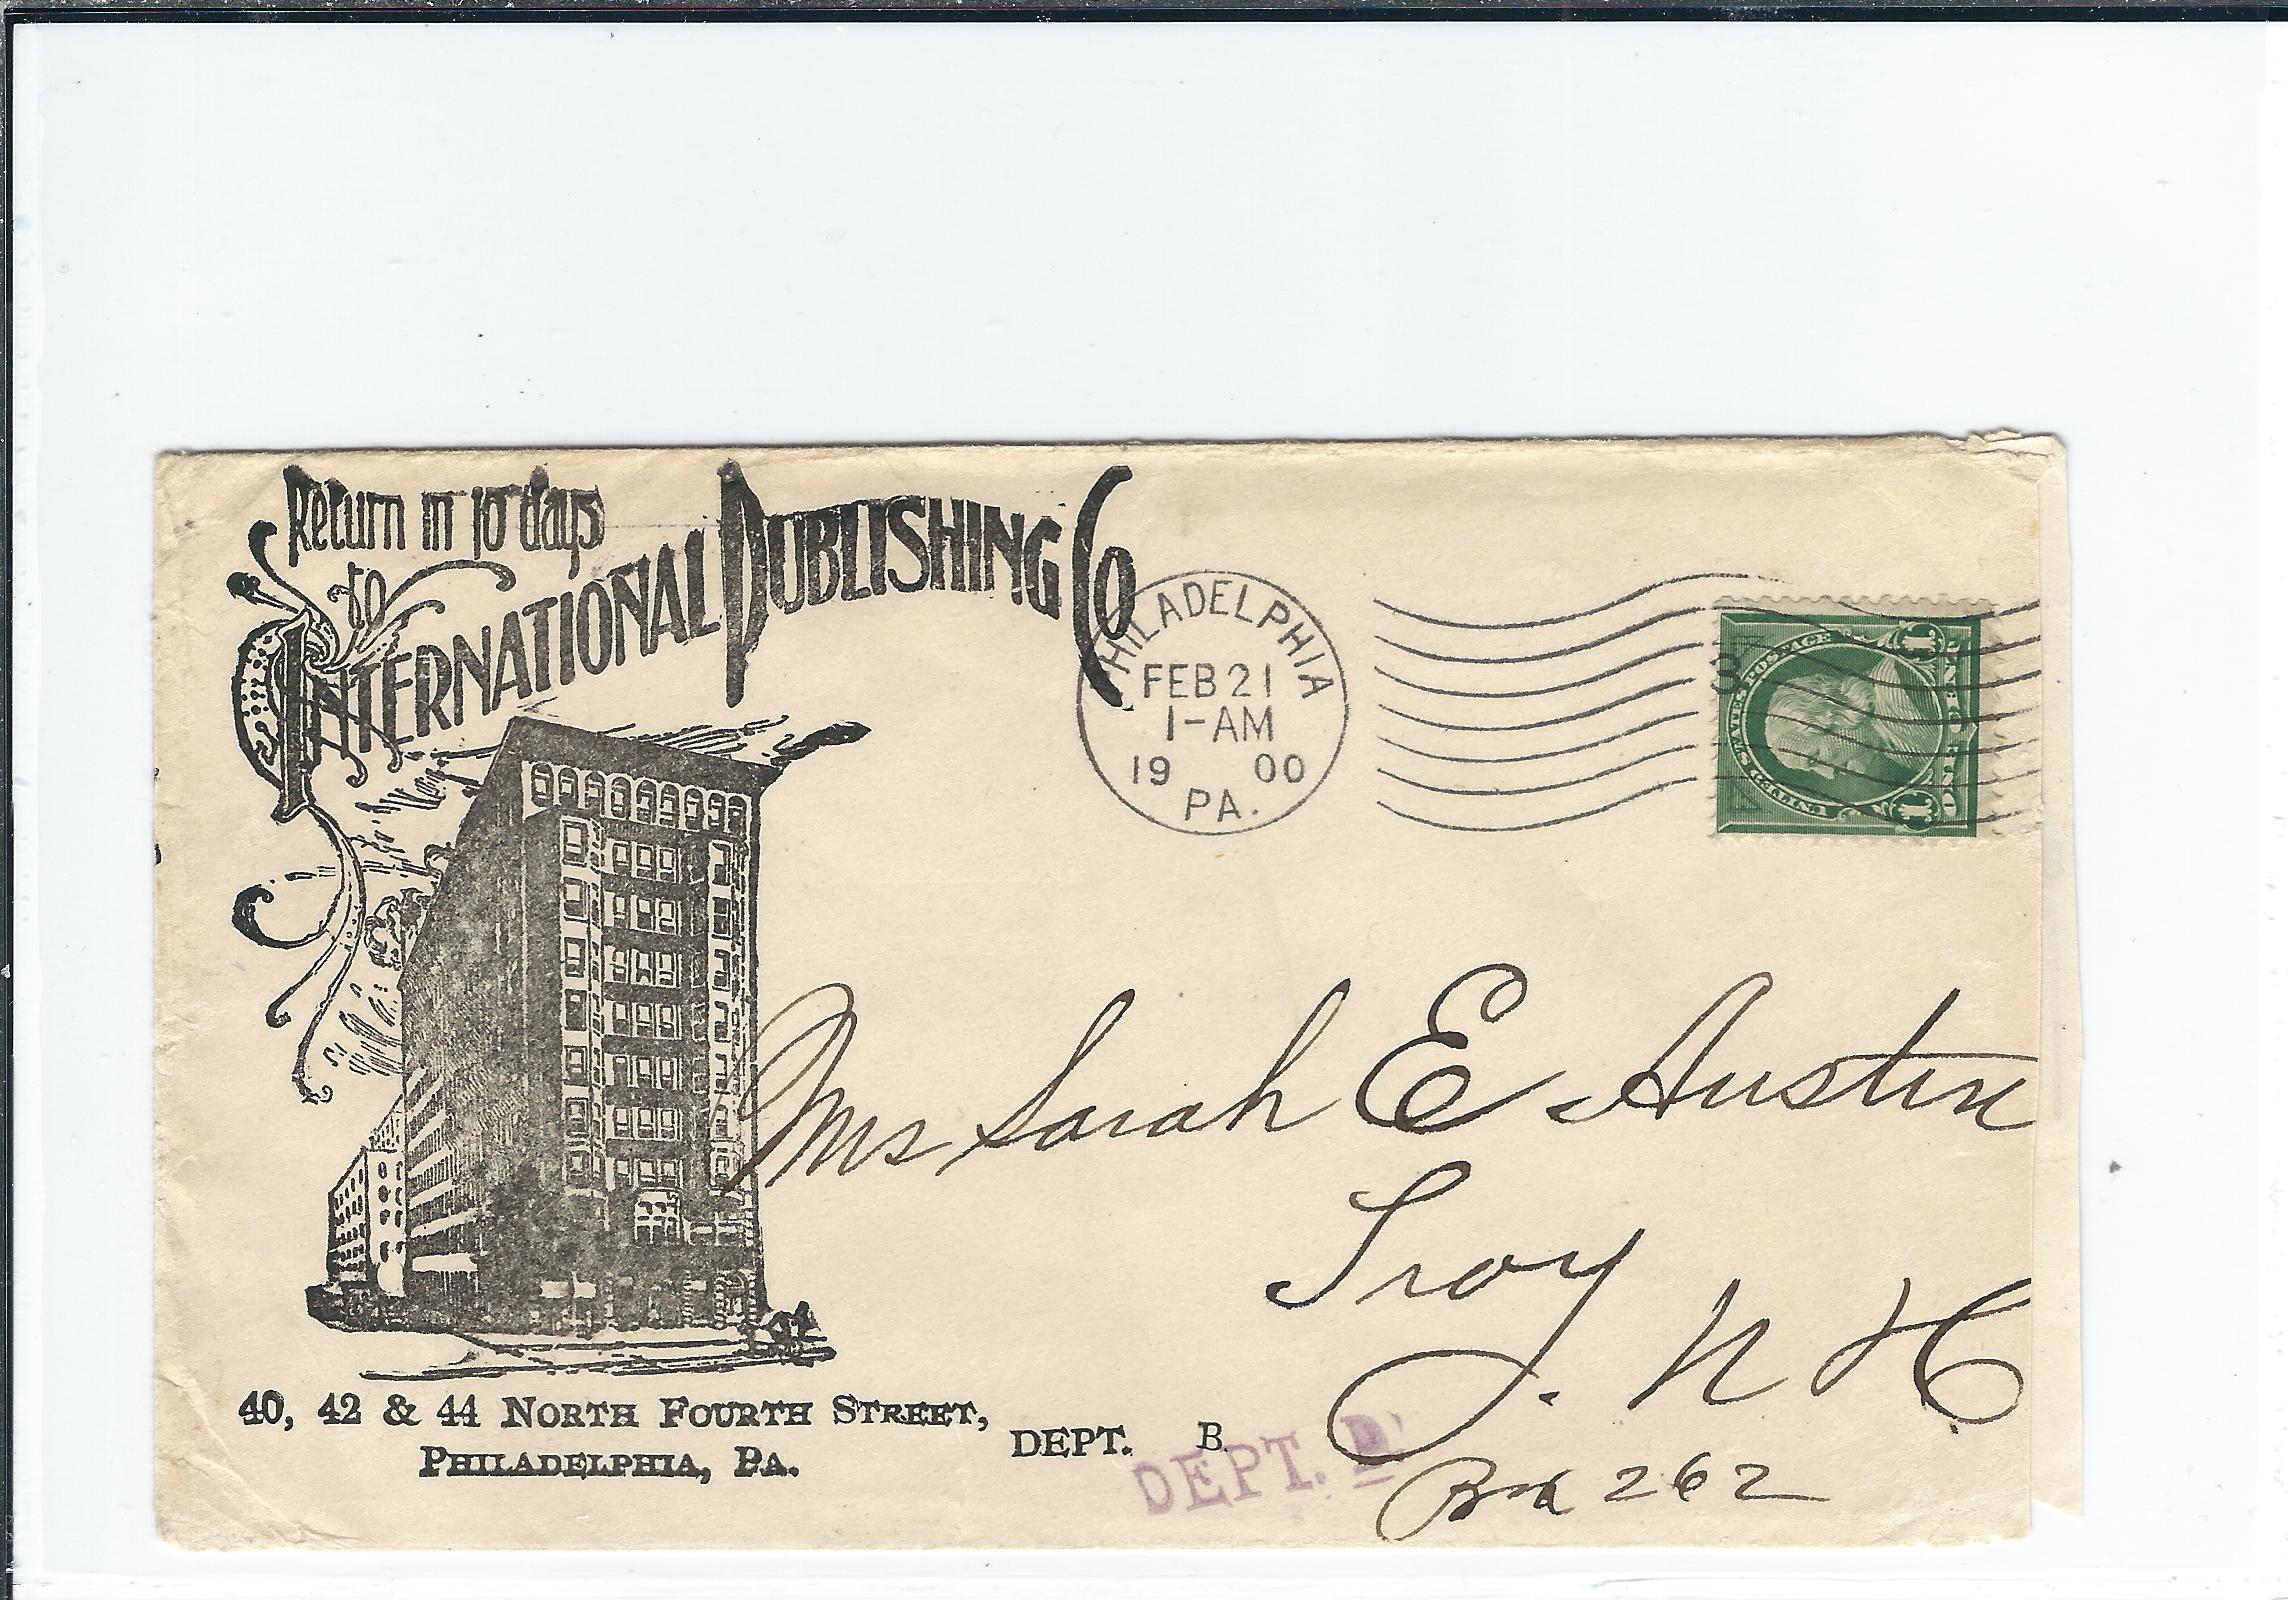 Return in 10 days
to
International Publishing Co
PHILADELPHIA
FEB 21
1-AM
19 00
PA.
3
UNITED STATES POSTAGE
1 ONE CENT 1
Mrs Sarah E. Austin
Troy
N H
Box 262
40, 42 & 44 North Fourth Street,
Philadelphia, Pa.
DEPT. B.
DEPT. D